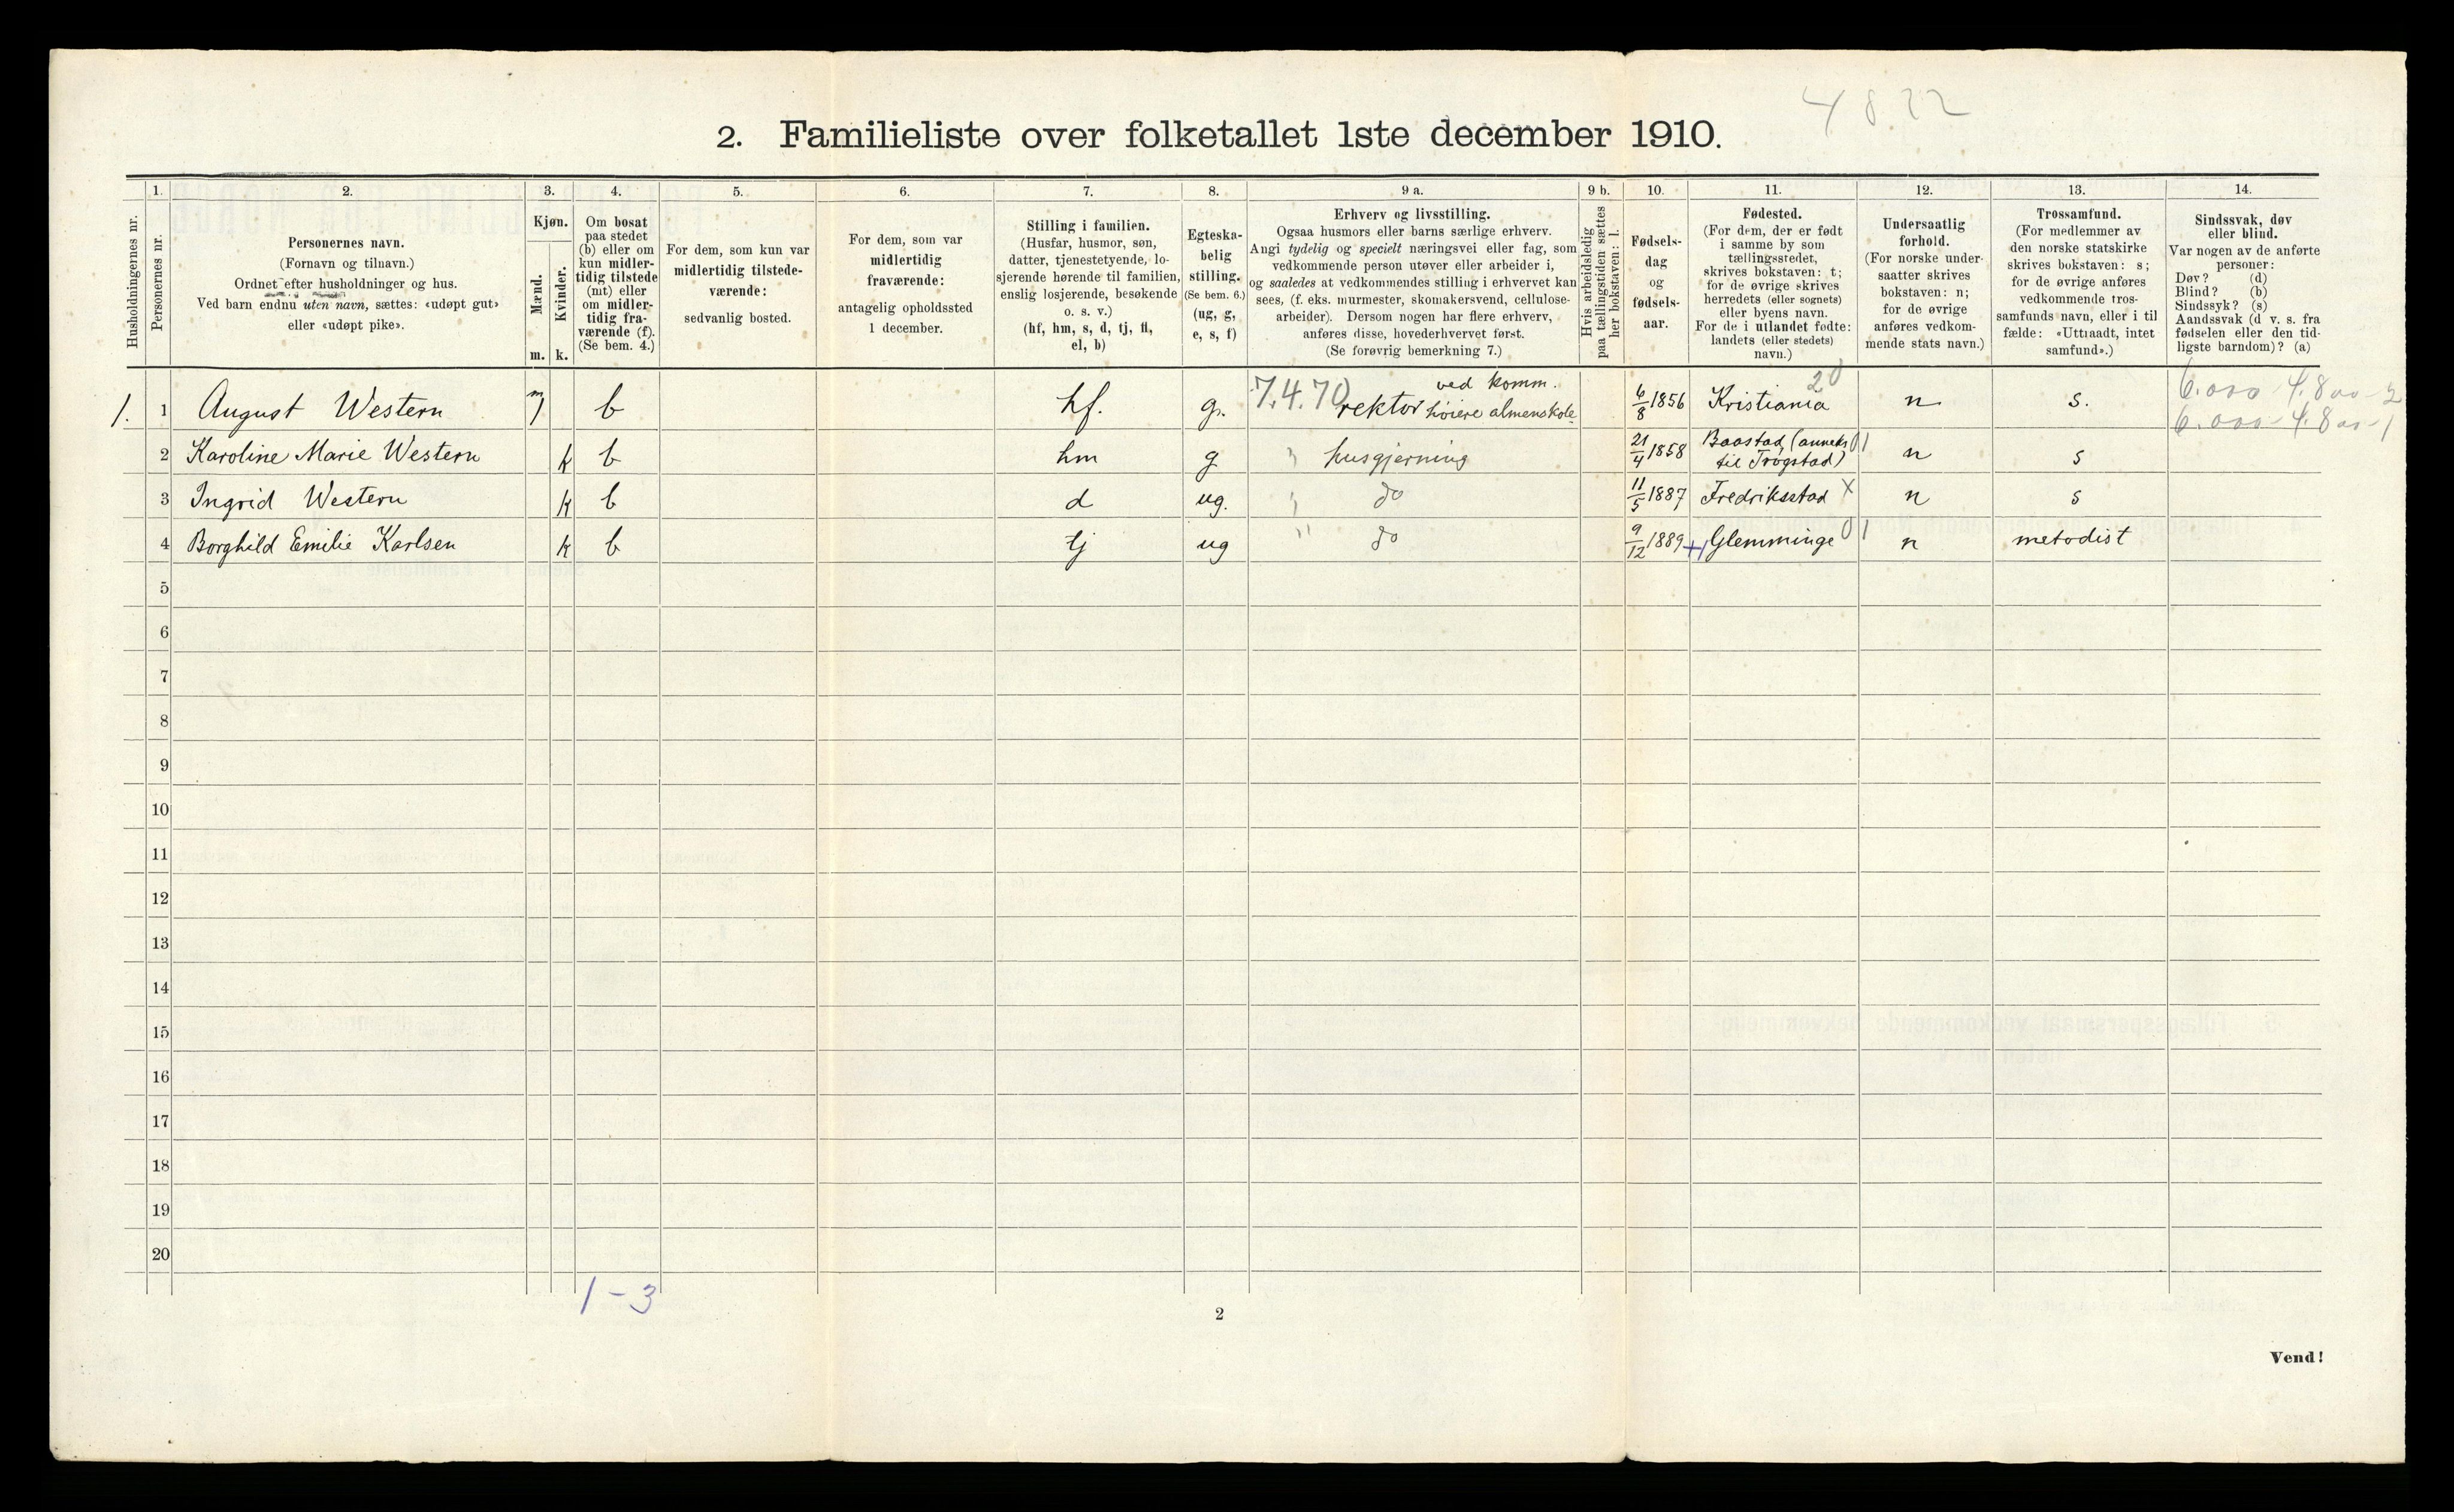 4822
2. Familieliste over folketallet 1ste december 1910.
Husholdningernes nr.
1. Personernes nr.
2. Personernes navn.
(Fornavn og tilnavn.)
Ordnet efter husholdninger og hus.
Ved barn endnu uten navn, sættes: «udøpt gut»
eller «udøpt pike».
3. Kjøn.
Mænd. m.
Kvinder. k.
4. Om bosat
paa stedet
(b) eller om
kun midler-
tidig tilstede
(mt) eller
om midler-
tidig fra-
værende (f).
(Se bem. 4.)
5. For dem, som kun var
midlertidig tilstede-
værende:
sedvanlig bosted.
6. For dem, som var
midlertidig
fraværende:
antagelig opholdssted
1 december.
7. Stilling i familien.
(Husfar, husmor, søn,
datter, tjenestetyende, lo-
sjerende hørende til familien,
enslig losjerende, besøkende
o. s. v.)
(hf, hm, s, d, tj, fl,
el, b)
8. Egteska-
belig
stilling.
(Se bem. 6.)
(ug, g,
e, s, f)
9 a. Erhverv og livsstilling.
Ogsaa husmors eller barns særlige erhverv.
Angi tydelig og specielt næringsvei eller fag, som
vedkommende person utøver eller arbeider i,
og saaledes at vedkommendes stilling i erhvervet kan
sees, (f. eks. murmester, skomakersvend, cellulose-
arbeider). Dersom nogen har flere erhverv,
anføres disse, hovederhvervet først.
(Se forøvrig bemerkning 7.)
9 b. Hvis arbeidsledig
paa tællingstiden sættes
her bokstaven: l.
10. Fødsels-
dag
og
fødsels-
aar.
11. Fødested.
(For dem, der er født
i samme by som
tællingsstedet,
skrives bokstaven: t;
for de øvrige skrives
herredets (eller sognets)
eller byens navn.
For de i utlandet fødte:
landets (eller stedets)
navn.)
12. Undersaatlig
forhold.
(For norske under-
saatter skrives
bokstaven: n;
for de øvrige
anføres vedkom-
mende stats navn.)
13. Trossamfund.
(For medlemmer av
den norske statskirke
skrives bokstaven: s;
for de øvrige anføres
vedkommende tros-
samfunds navn, eller i til
fælde: «Uttraadt, intet
samfund».)
14. Sindssvak, døv
eller blind.
Var nogen av de anførte
personer:
Døv? (d)
Blind? (b)
Sindssyk? (s)
Aandssvak (d v. s. fra
fødselen eller den tid-
ligste barndom)? (a)
1. 1 August Western m b hf. g. 7.4.70 rektor ved komm. høiere almenskole 6/8 1856 Kristiania 20 n s. 6.000 - 4.800 - 2
6.000 - 4.800 - 1
2 Karoline Marie Western k b hm g " husgjerning 21/4 1858 Baastad (anneks til Trøgstad) 01 n s
3 Ingrid Western k b d ug. " do 11/5 1887 Fredriksstad X n s
4 Borghild Emilie Karlsen k b tj ug " do 9/12 1889 + Glemminge 01 n metodist
5
6
7
8
9
10
11
12
13
14
15
16
17
18
19
20
1 - 3
2
Vend!